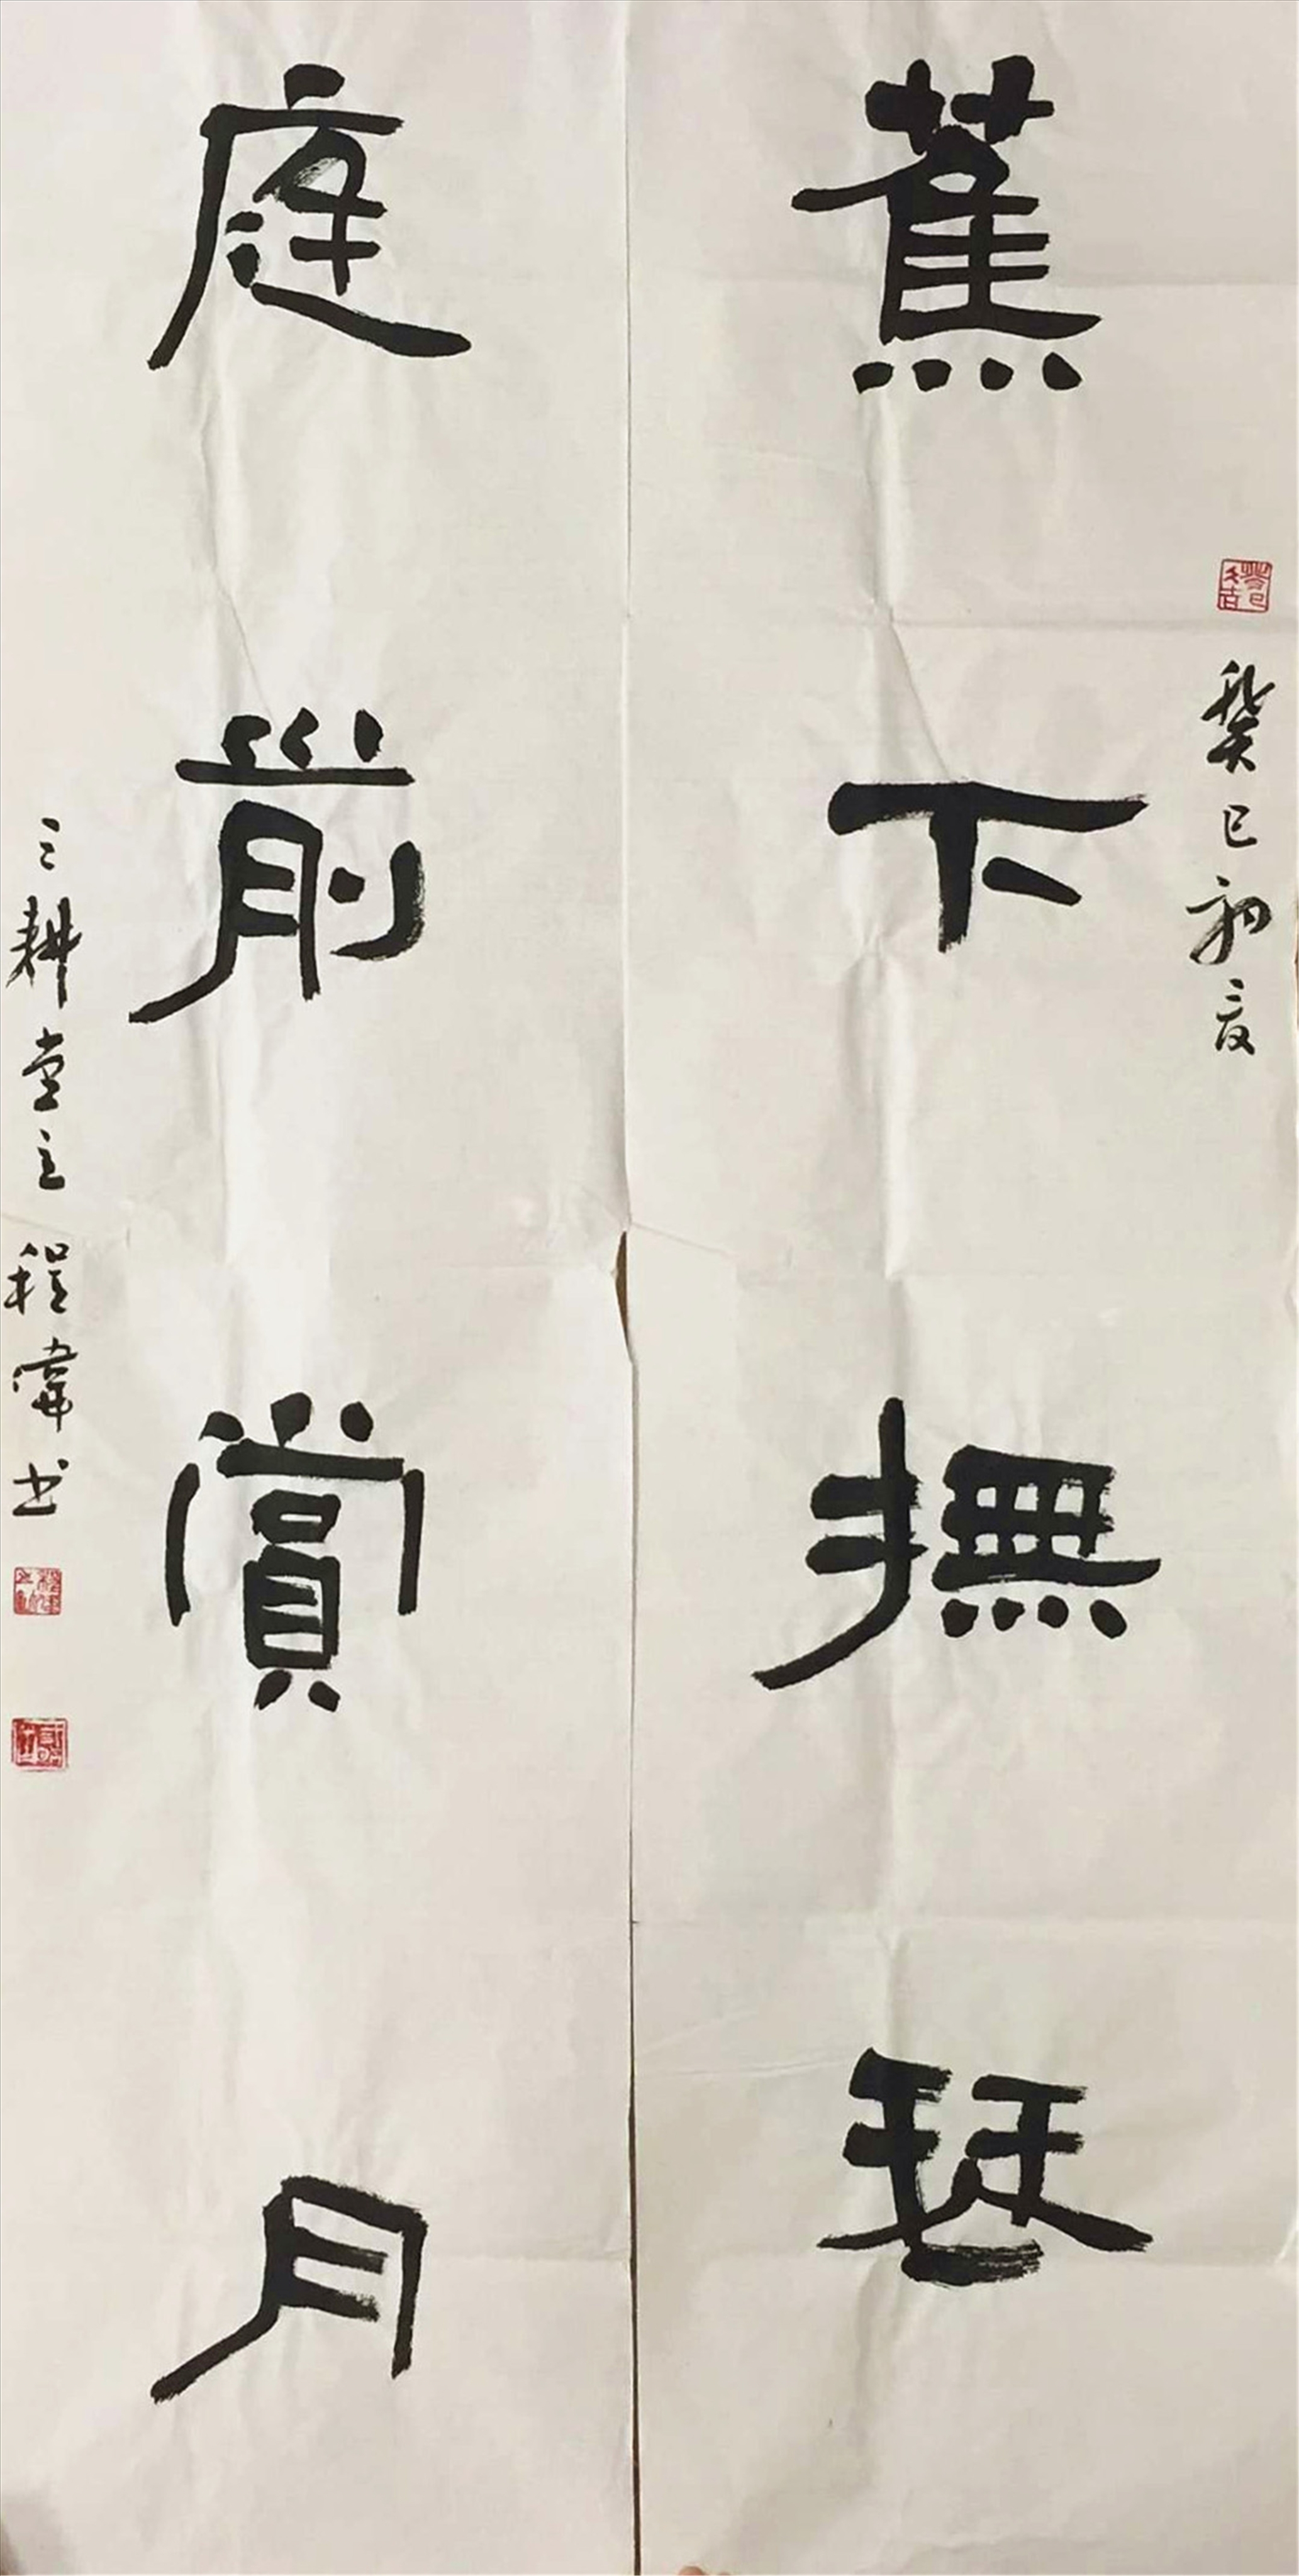 蕉下撫琹
癸巳初夏
庭前賞月
三耕堂主程偉书